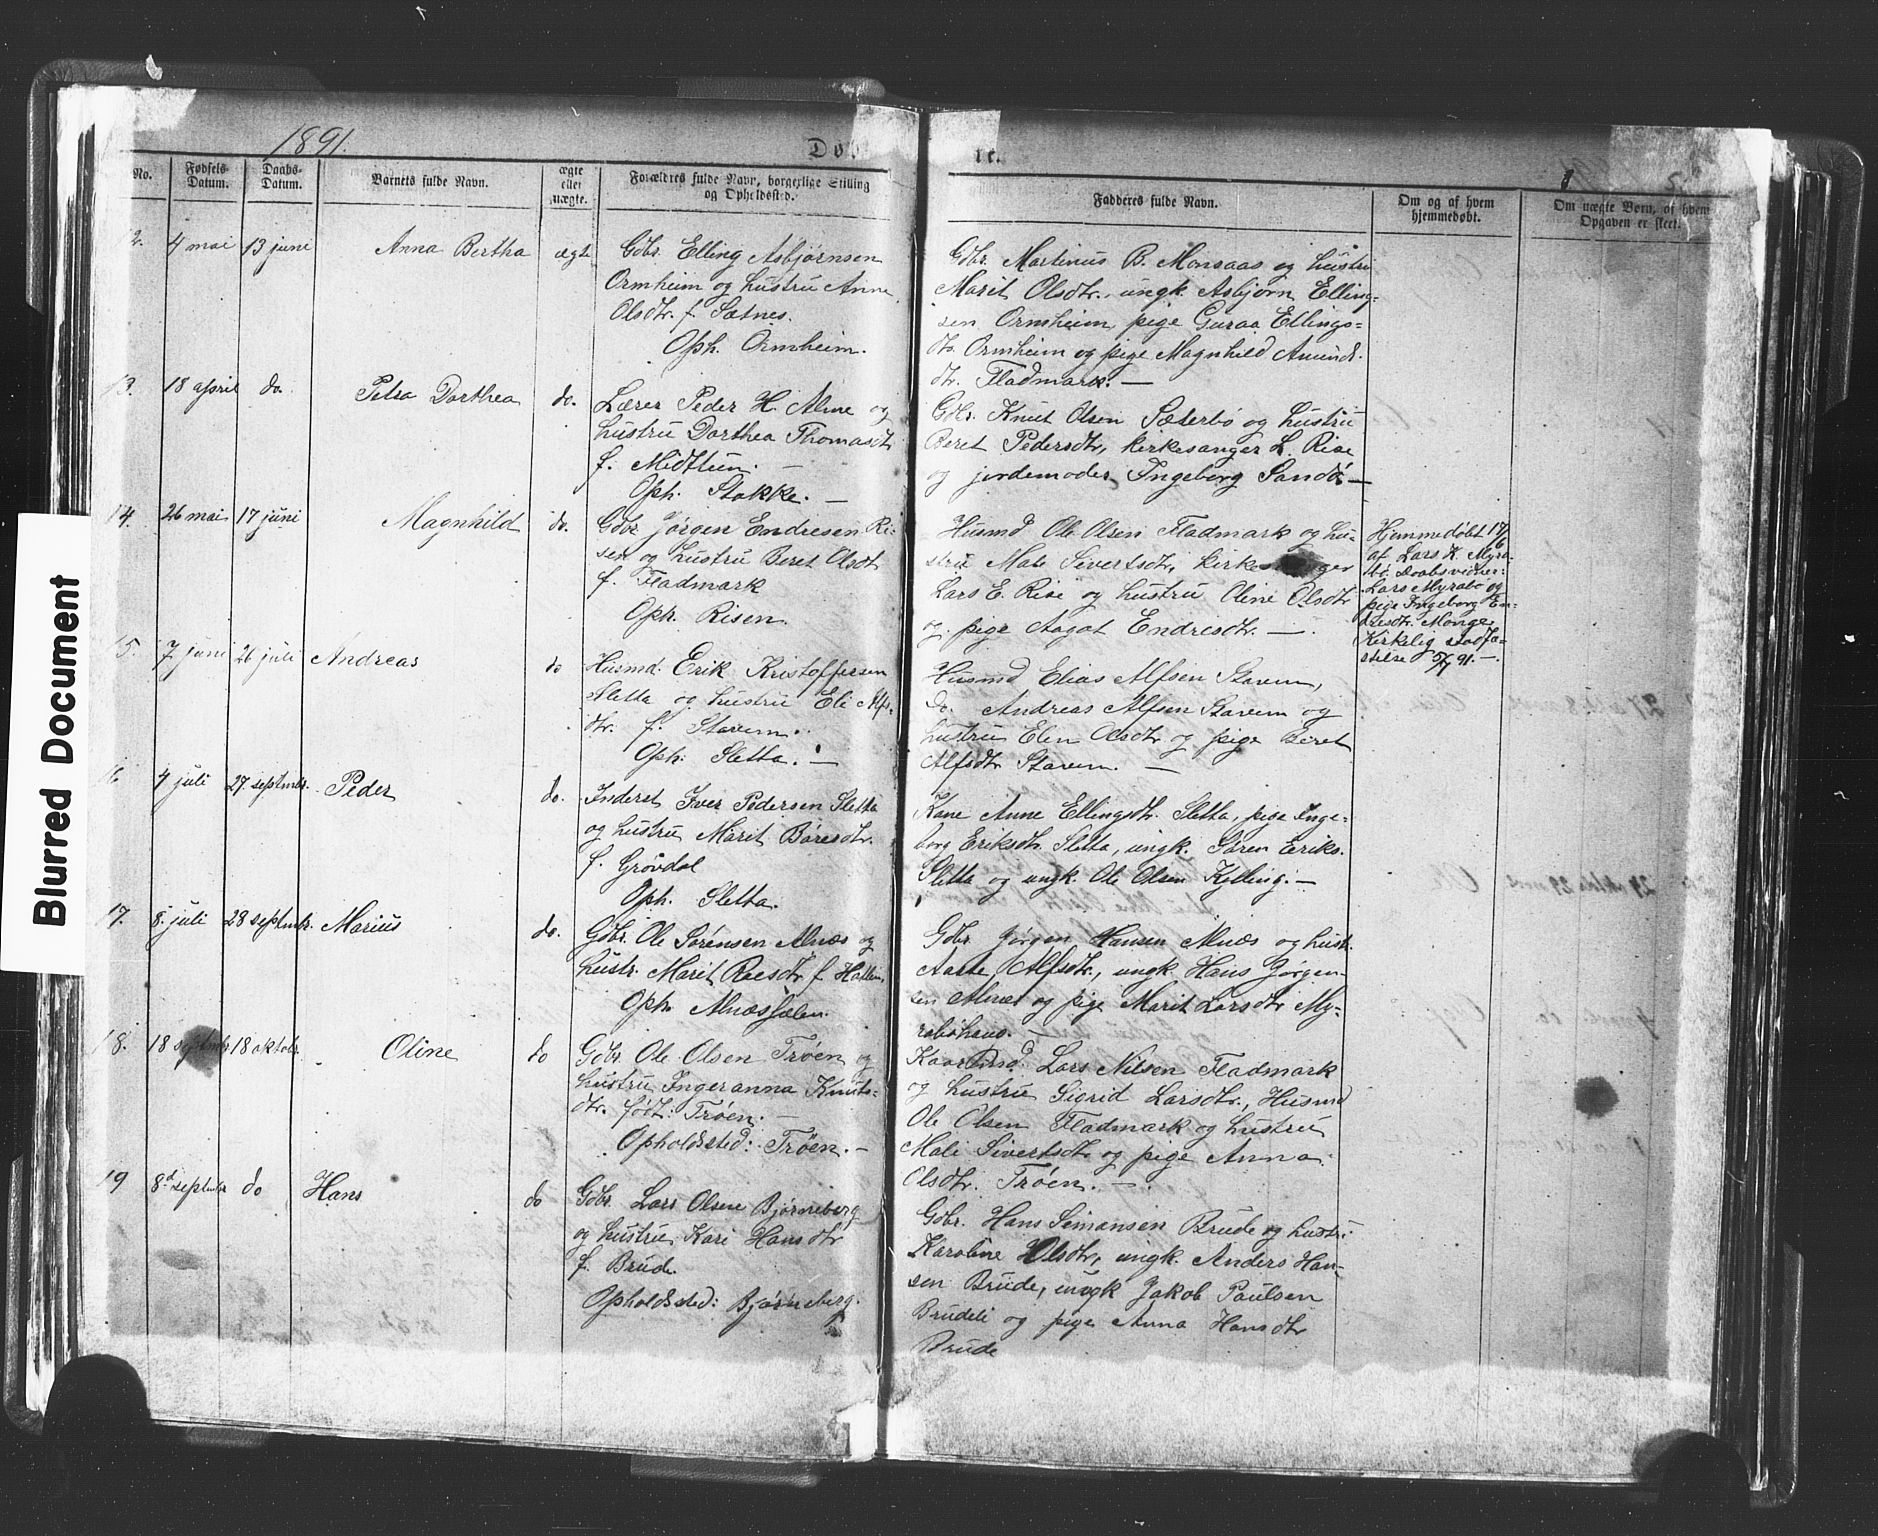 1891.
Døb
te.
No.
Fødsels-Datum.
Daabs-Datum.
Barnets fulde Navn.
ægte eller uægte.
Forældres fulde Navn, borgerlige Stilling og Opholdssted.
Fadderes fulde Navn.
Om og af hvem hjemmedøbt.
Om uægte Børn, af hvem Opgaven er skeet.
Blurred Document
12. 4 mai 13 juni Anna Bertha ægte
Gdbr. Elling Asbjørnsen
Ormheim og hustru Anne
Olsdtr. f. Sætnes.
Oph. Ormheim.
Gdbr. Martinus B. Monsaas og hustru
Marit Olsdtr., ungk. Asbjørn Elling-
sen Ormheim, pige Guraa Ellings-
dtr. Ormheim og pige Magnhild Amunds-
dtr. Fladmark. —
13. 18 april do. Petra Dorthea do.
Lærer Peder H. Alme og
hustru Dorthea Thomasdtr.
f. Midttun. —
Oph. Stokke. —
Gdbr. Knut Olsen Sæterbø og hustru
Beret Pedersdtr, kirkesanger L. Rise
og jordemoder Ingeborg Sandö —
14. 26 mai 17 juni Magnhild do.
Gdbr Jørgen Endresen Ri-
sen og hustru Beret Olsdtr
f. Fladmark
Oph. Risen.
Husmd Ole Olsen Fladmark og hu-
stru Mali Sivertsdtr, kirkesanger
Lars E. Rise og hustru Oline Olsdtr
og pige Aagot Endresdtr. —
Hjemmedøbt 17/6
af Lars K. Myra-
bø. Daabsvidner
Lars Myrabø og
pige Ingeborg En-
dresdtr. Monge
Kirkelig stadfæ-
stelse 5/7 91. —
15. 7 juni 26 juli Andreas do
Husmd. Erik Kristoffersen
Sletta og hustru Eli Alfs-
dtr. f. Stavem.
Oph. Sletta. —
Husmd Elias Alfsen Stavem,
do. Andreas Alfsen Stavem og
hustru Elen Olsdtr og pige Beret
Alfsdtr Stavem. —
16 4 juli 27. septmbr. Peder do.
Inderst Iver Pedersen Sletta
og hustru Marit Baresdtr.
f. Grøvdal
Oph. Sletta.
Kone Anne Ellingsdtr. Sletta, pige Inge-
borg Eriksdtr. Sletta, ungk. Søren Eriks.
Sletta og ungk. Ole Olsen Kylling. —
17. 8. juli 28 septmbr. Marius do.
Gdbr. Ole Sørensen Alnæs og
hustr. Marit Roesdtr f. Hatlen,
Oph. Alnæsjølen.
Gdbr Jørgen Hansen Alnæs og hustr.
Aase Alfsdtr., ungk. Hans Jørgen-
sen Alnæs og pige Marit Larsdtr My-
rabøhaus. —
18. 18 septmbr 18 oktobr. Oline do
Gdbr. Ole Olsen Trøen og
hustru Ingeranna Knuts-
dtr. født: Trøen. —
Opholdssted: Trøen. —
Kaarmd. Lars Nilsen Fladmark
og hustru Sigrid Larsdtr., Husmd
Ole Olsen Fladmark og hustru
Mali Sivertsdtr og pige Anna
Olsdtr. Trøen. —
19 8de septmbr do Hans do
Gdbr. Lars Olsen Bjørneberg
og hustru Kari Hansdtr
f. Brude.
Opholdssted: Bjørneberg.
Gdbr. Hans Simonsen Brude og hustru
Karoline Olsdtr, ungk. Anders Han-
sen Brude, ungk Jakob Paulsen
Brudeli og pige Anna Hansdtr
Brude